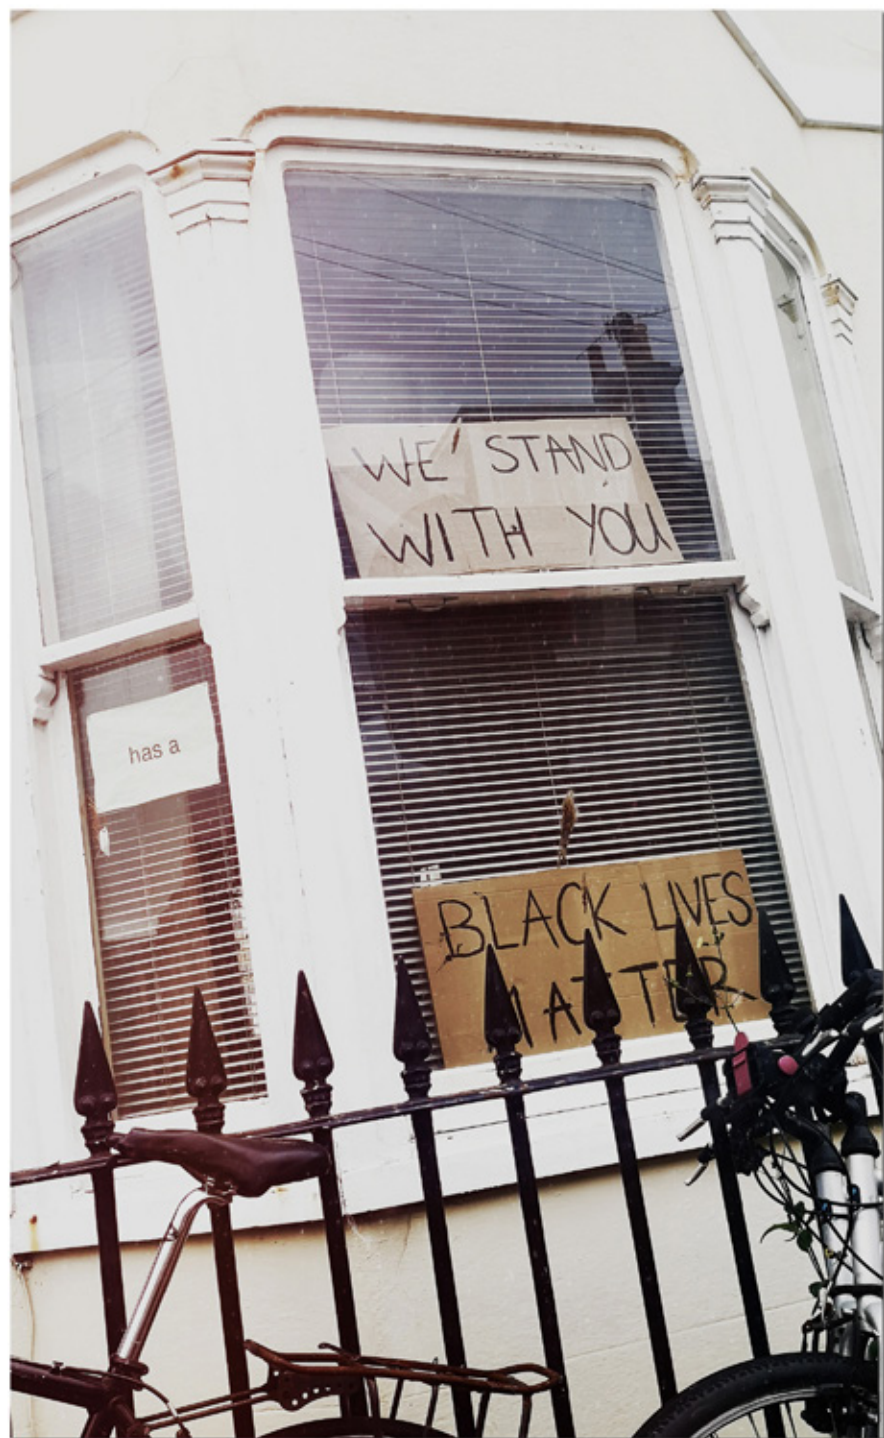 WE STAND
WITH YOU
has a
BLACK LIVES
MATTER